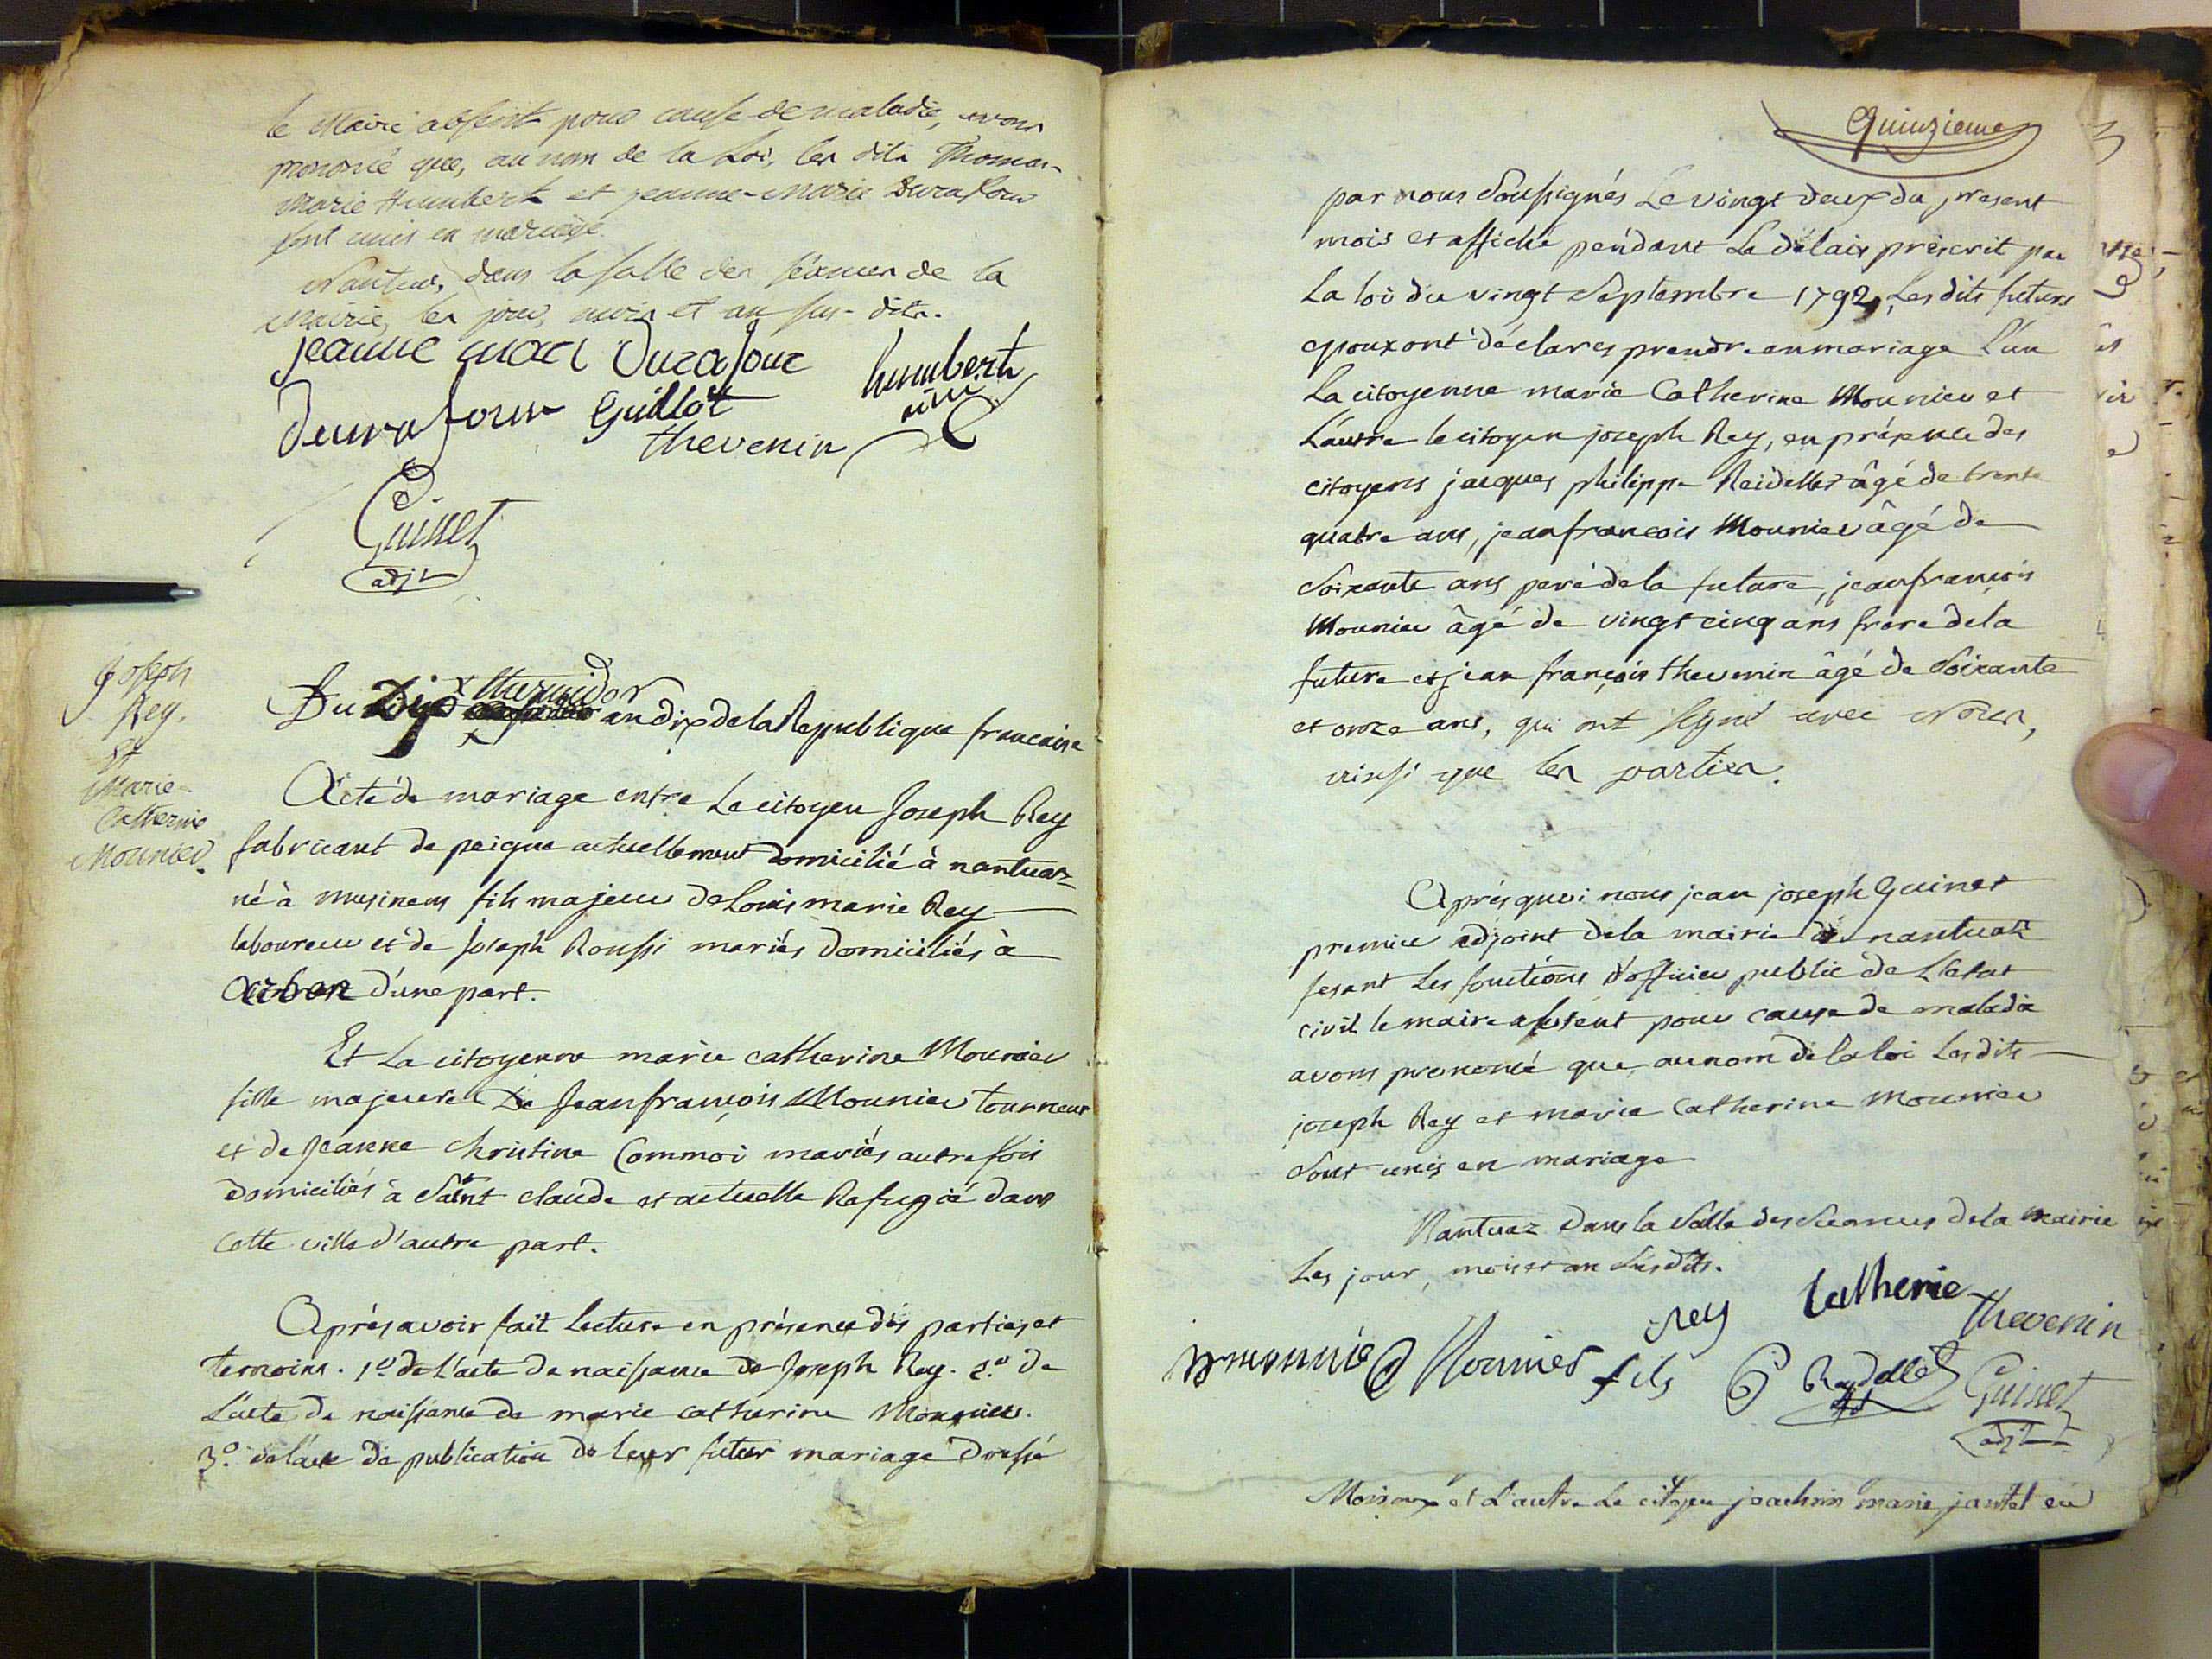 le Maire absent pour cause de maladie, avons
prononcé que, au nom de la Loi, les dits Thomas-
Marie Humbert et jeanne-Marie Durafour
sont unis en mariage.
Nantua, dans la salle des séances de la
Mairie, les jour, mois et an sus-dits.
jeanne mari Durafour
humbert
Durafour Guillot
thevenin
Guinet
adjt
Joseph
Rey.
et
Marie-
Catherine
Mounier.
Du Dix thermidor an dix de la Republique francaise
Acte de mariage entre Le citoyen Joseph Rey
fabricant de peigne actuellement domicilié à nantuaz
né à musinens fils majeur de Louis marie Rey
laboureur et de Joseph Roussi mariés domiciliés à
Arbon d'une part.
Et La citoyenne marie catherine Mounier
fille majeure De Jean françois Mounier tourneur
et de Jeanne Christine Commoi mariés autre fois
domiciliés à Saint claude et actuelle Refugié dans
cette ville d'autre part.
Aprés avoir fait Lecture en présence dés parties et
temoins. 1º de L'acte de naissance de Joseph Rey. 2º de
L'acte de naissance de marie catherine Mounier.
3º de l'acte de publication de leur futur mariage dressé
Quinzieme
par nous Soussignés Le vingt deux du present
mois et affiché péndant Le délais préscrit par
La loi du vingt Septembre 1792, Les dits futurs
epoux ont déclarés prendre en mariage L'un
La citoyenne marie Catherine Mounier et
L'autre le citoyen joseph Rey, en présence des
citoyens jacques philippe Reidellet âgé de trente
quatre ans, jean francois Mounier âgé de
Soixante ans peré de la future, jean françois
Mounier âgé de vingt cinq ans frere de la
future et jean françois thevenin âgé de Soixante
et onze ans, qui ont signé avec Nous,
ainsi que les parties.
Aprés quoi nous jean joseph Guinet
premier adjoint de la mairie de nantuaz
fesant Les fonctions d'officier public de L'état
civil le maire absent pour cause de maladie
avons prononcé que au nom de la loi Les dits
joseph Rey et marie Catherine Mounier
Sont unis en mariage
Nantuaz dans la Salle des Séances de la mairie
Les jour, mois et an Susdits.
Rey
Catherie
thevenin
Mounier fils
Reydellet
Guinet
adjt
et L'autre Le citoyen joachim marie jantet en